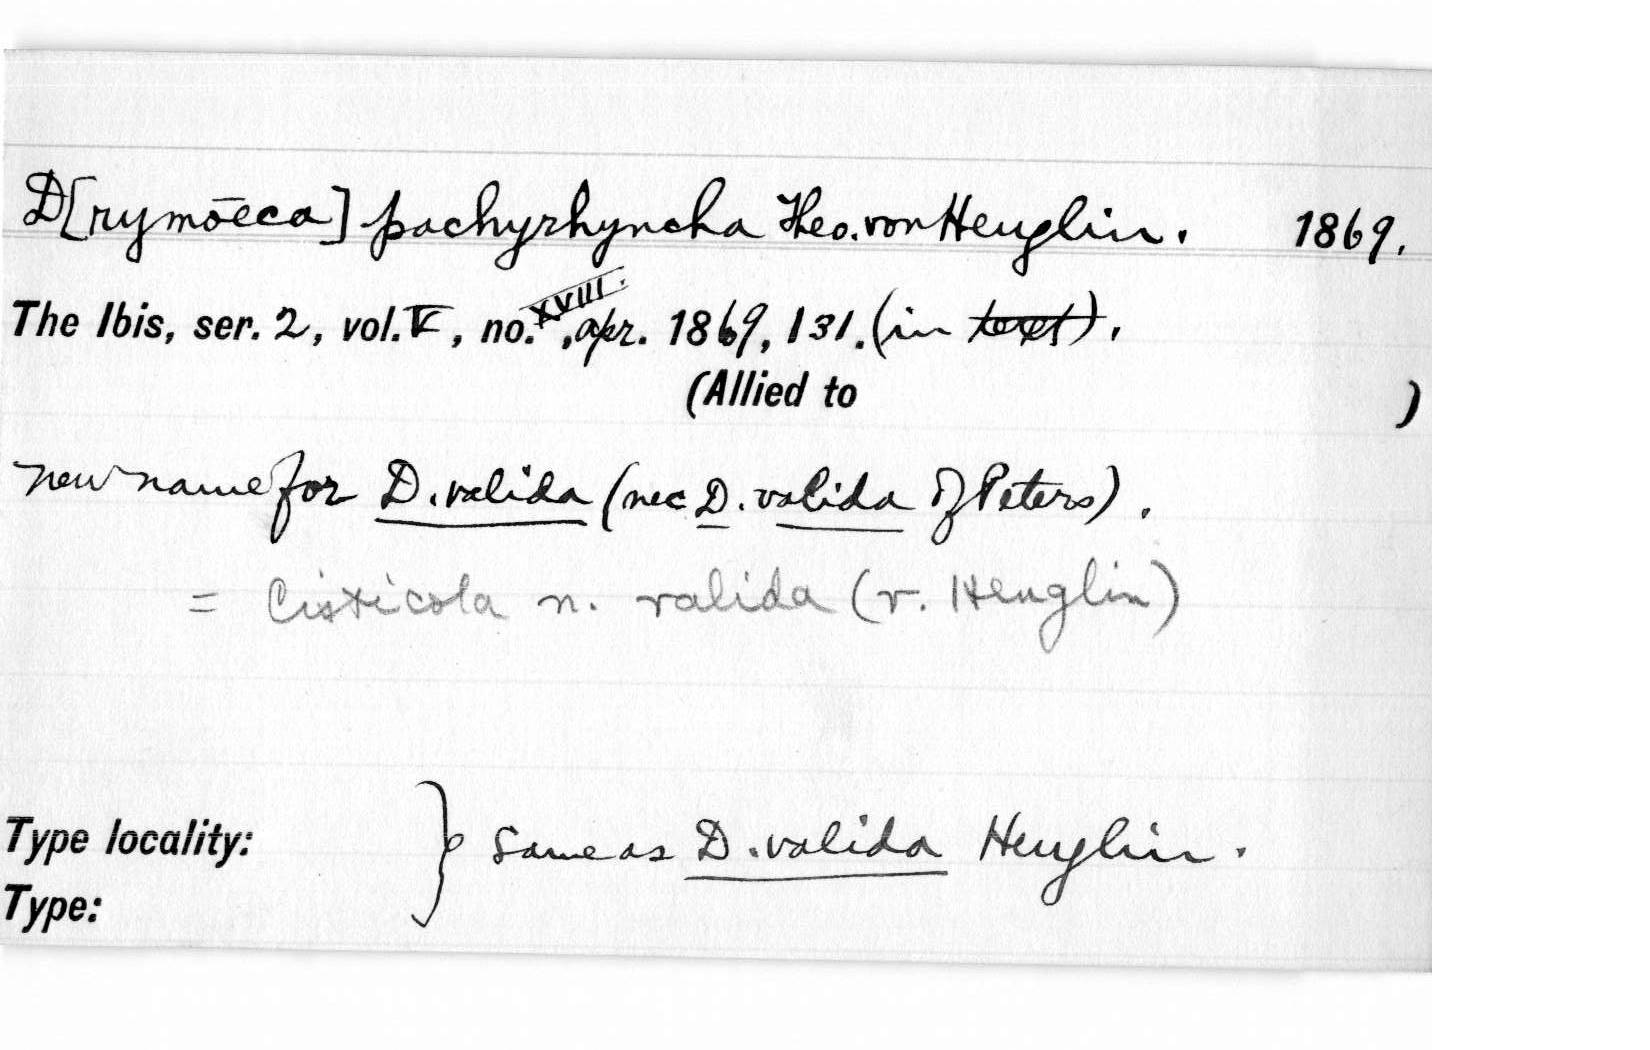 D[rymōeca] pachyrhyncha Theo. von Heuglin. 1869.
The Ibis, ser. 2, vol. V, no. XVIII., apr. 1869, 131. (in text).
(Allied to )
new name for D. valida (nec D. valida of Peters).
= Cisticola n. valida (v. Heuglin)
Type locality: } Same as D. valida Heuglin.
Type: